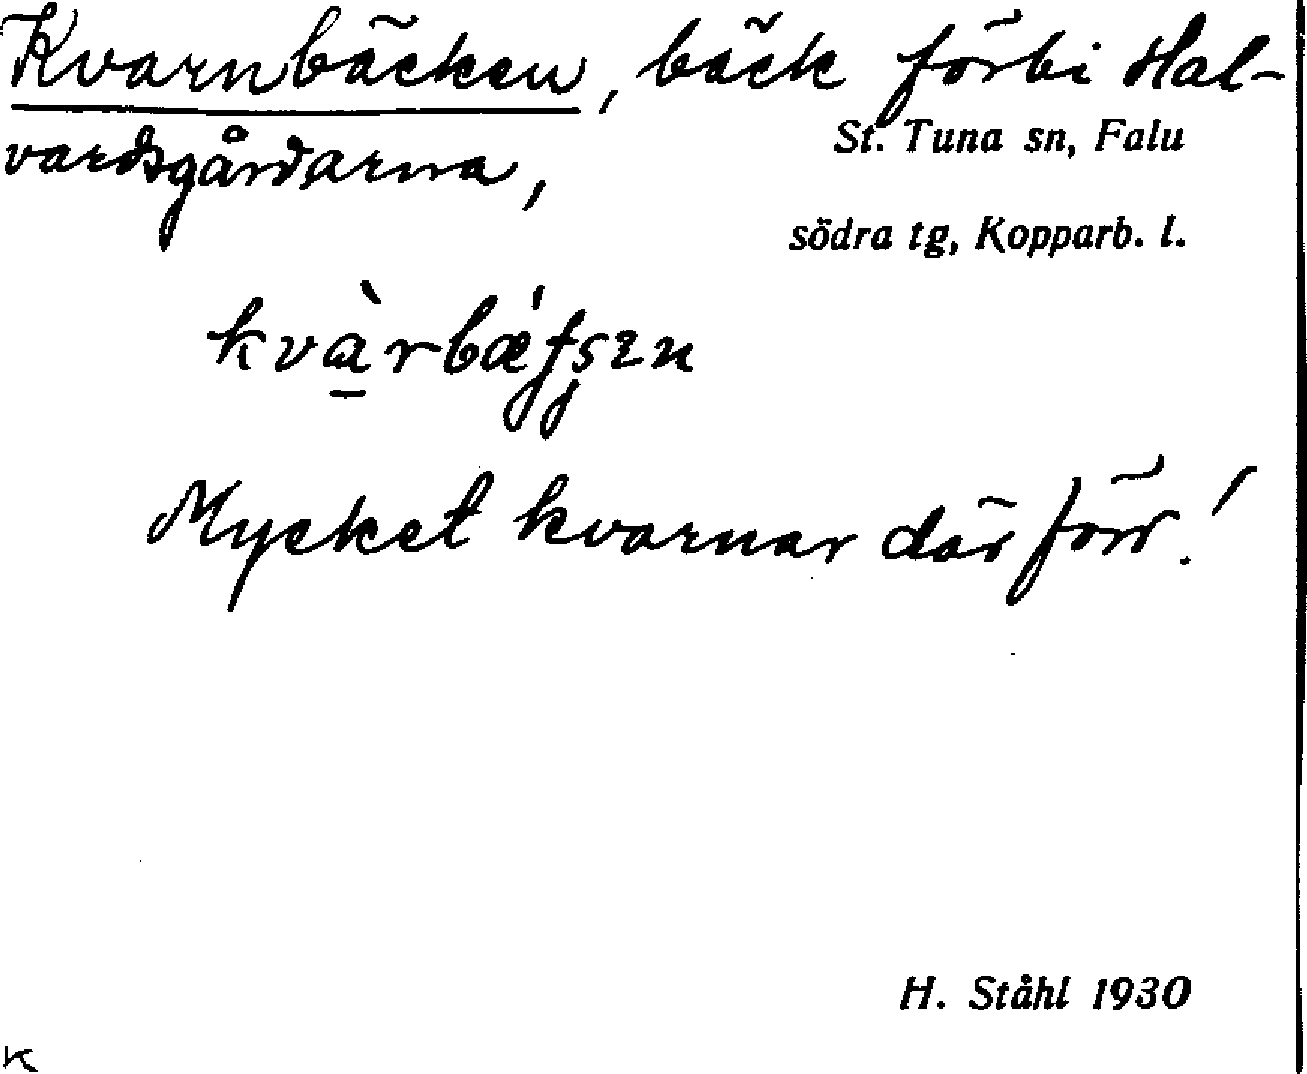 Kvarnbäcken, bäck förbi Hal-
vardsgårdarna,
St. Tuna sn, Falu
södra tg, Kopparb. l.
Mycket kvarnar där förr!
H. Ståhl 1930
K